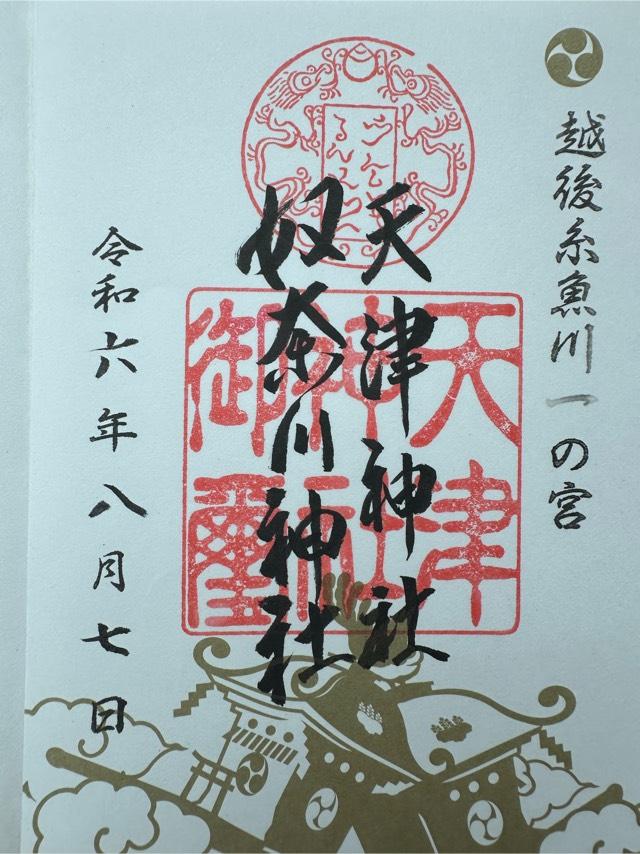 越後糸魚川一の宮
天津神社
奴奈川神社
天津
神社
御璽
令和六年八月七日